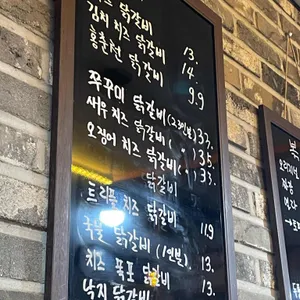 치즈 닭갈비
김치 치즈 닭갈비 13.
홍춘천 닭갈비 14.
9.9
쭈꾸미 닭갈비(2~3인분) 33.
새우 치즈 닭갈비( " ) 35.
오징어 치즈 닭갈비( " ) 33.
닭갈비
트리플 치즈 닭갈비 11.9
국물 닭갈비 (1인분). 13.
치즈 폭포 닭갈비 13.
낙지 닭갈비 13.
복